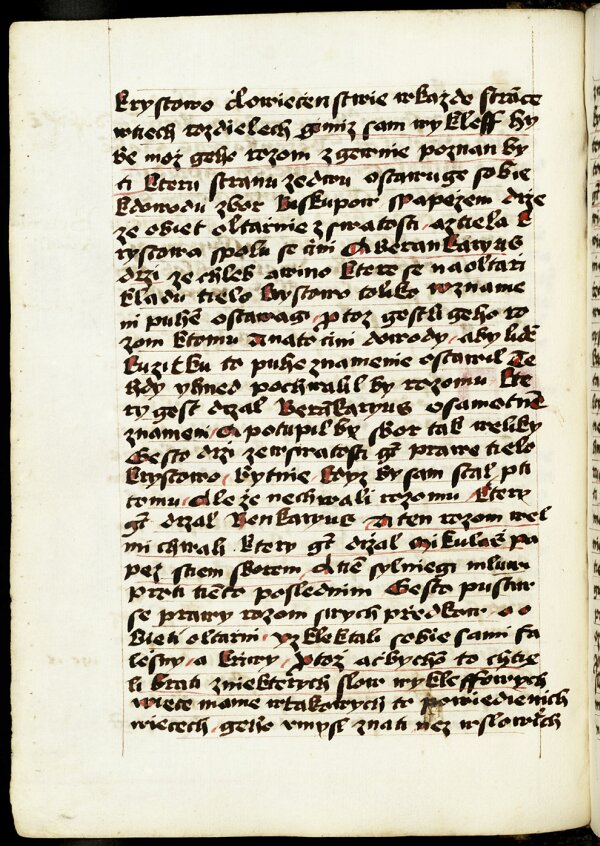 krystowo cłowieczenstwie wkazde stračce
wiech rozdielech gimiz sam wykleff by
be moz geho rozom zgewnie poznan by
ti kteru stranu zedwu ostawuge sobie
kdowodu zbor biskupow spapezem drze
ze obiet oltarnie zswatosti aztiela k
rystowa spolu se cini A berankaryus
drzi ze chleb awino ktere se naoltari
kladu tielo krystowo toliko wzname
ni puhem ostawagi ptoz gestli geho ro
zom ktomu A nato cini dowody aby lidem
kuzitku to puhe znamenie ostawil Te
hdy yhned pochwalil by rozomu kte
ry gest drzal Berankaryus osamotne
znameni A potupil by sbor tak weliky
Gesto drzi zewswatosti gt prawe tielo
krystowo bytnie kryz by sam stal pti
tomu Ale ze nechwali rozomu ktery
gt drzal Benkaryus A ten rozom wel
mi chwali ktery gt drzal mikulas pa
pez stiem sborem A tiem sylniegi mluwi
proti tiemto poslednim Gesto pustiw
se prawy rozom swych předkow o o
bieti oltarni vzklektali sobie sami fa
lesny a kriwy ptoz acbychom to chtie
li brati zniekterych slow wykleffowych
wiece mame wtakowych to powiedienich
wiecech geho vmysl znati nez wslowich